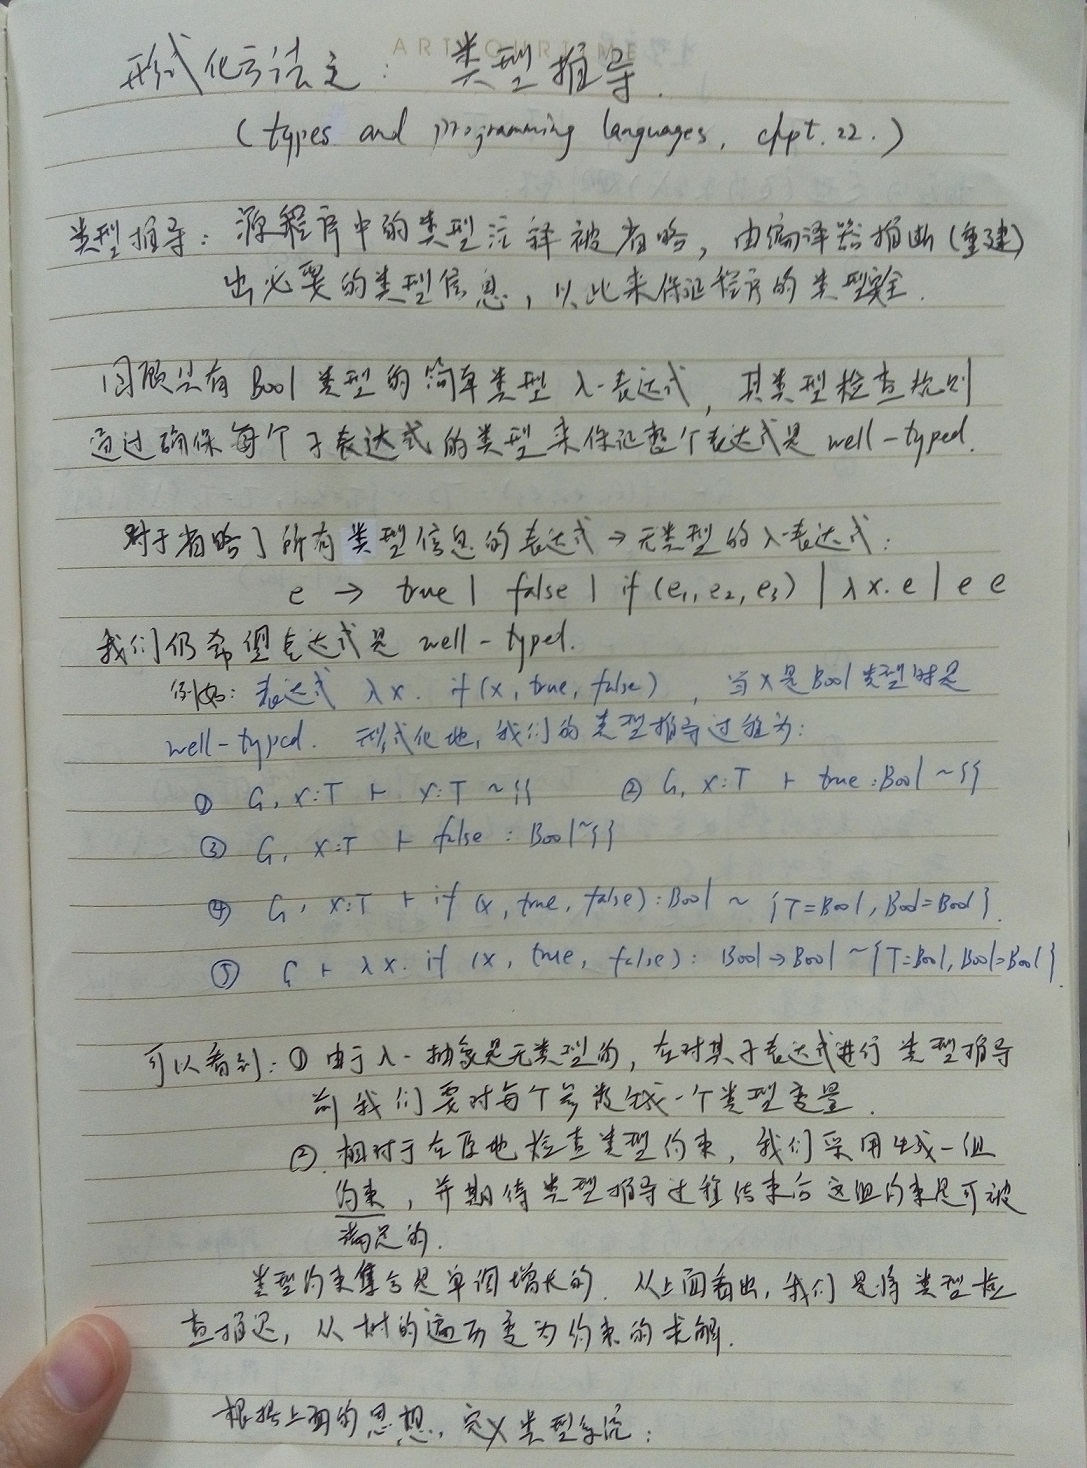 ART OUR TIME
形式化方法之：类型推导.
(types and programming languages, chpt. 22.)
类型推导：源程序中的类型注释被省略，由编译器推断(重建)
出必要的类型信息，以此来保证程序的类型安全.
回顾只有 Bool 类型的简单类型 λ-表达式，其类型检查规则
通过确保每个子表达式的类型来保证整个表达式是 well-typed.
对于省略了所有类型信息的表达式→无类型的λ-表达式：
e → true | false | if (e₁, e₂, e₃) | λx. e | e e
我们仍希望表达式是 well-typed.
例如：表达式 λx. if (x, true, false)，当x是Bool类型时是
well-typed. 形式化地，我们的类型推导过程为：
① G, x:T ⊢ x:T ~ {} ② G, x:T ⊢ true:Bool ~ {}
③ G, x:T ⊢ false : Bool ~ {}
④ G, x:T ⊢ if (x, true, false) : Bool ~ {T=Bool, Bool=Bool}.
⑤ G ⊢ λx. if (x, true, false) : Bool→Bool ~ {T=Bool, Bool=Bool}.
可以看到：① 由于λ-抽象是无类型的，在对其子表达式进行类型推导
前我们要对每个参数生成一个类型变量.
②. 相对于在原地检查类型约束，我们采用生成一组
约束，并期待类型推导过程结束后这组约束是可被
满足的.
类型约束集合是单调增长的. 从上面看出，我们是将类型检
查推迟，从树的遍历变为约束的求解.
根据上面的思想，定义类型系统：